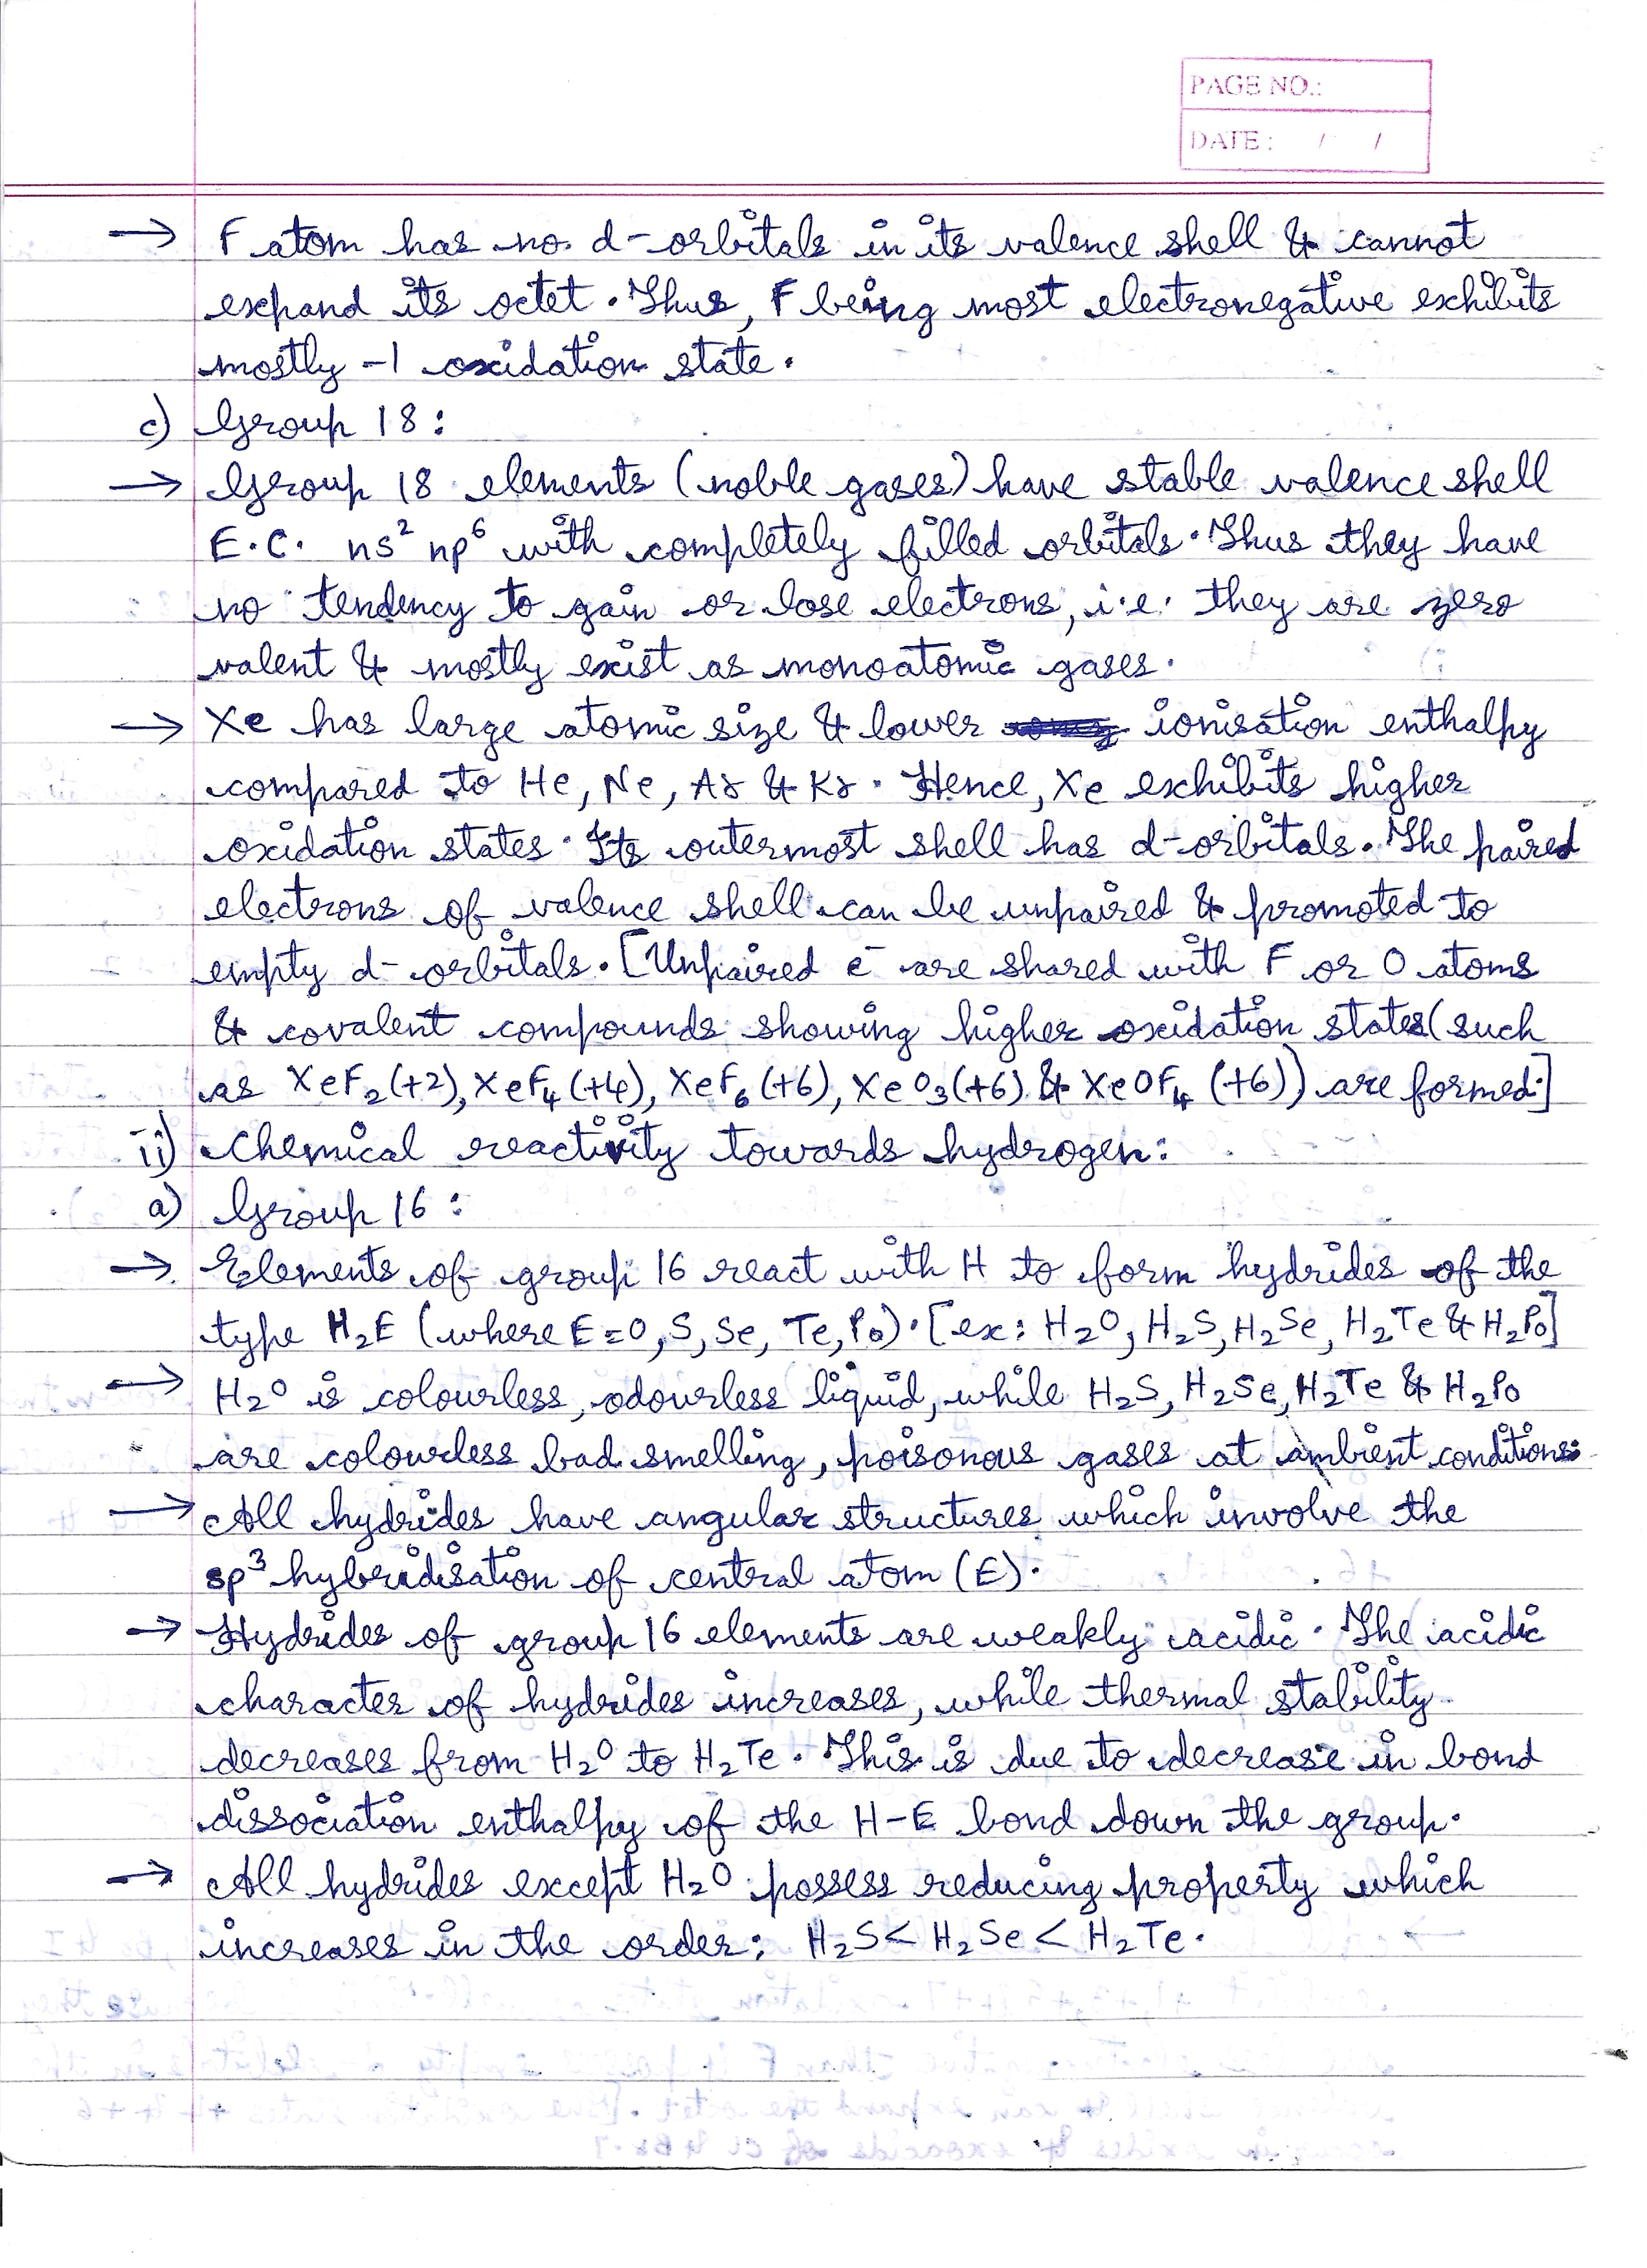 PAGE NO.:
DATE: / /
→ F atom has no d-orbitals in its valence shell & cannot
expand its octet. Thus, F being most electronegative exhibits
mostly -1 oxidation state.
c) Group 18:
→ Group 18 elements (noble gases) have stable valence shell
E.C. ns² np⁶ with completely filled orbitals. Thus they have
no tendency to gain or lose electrons, i.e. they are zero
valent & mostly exist as monoatomic gases.
→ Xe has large atomic size & lower ionisation enthalpy
compared to He, Ne, Ar & Kr. Hence, Xe exhibits higher
oxidation states. Its outermost shell has d-orbitals. The paired
electrons of valence shell can be unpaired & promoted to
empty d-orbitals. [Unpaired e⁻ are shared with F or O atoms
& covalent compounds showing higher oxidation states (such
as XeF₂ (+2), XeF₄ (+4), XeF₆ (+6), XeO₃ (+6) & XeOF₄ (+6)) are formed.]
ii) Chemical reactivity towards hydrogen:
a) Group 16:
→ Elements of group 16 react with H to form hydrides of the
type H₂E (where E=O, S, Se, Te, Po). [ex: H₂O, H₂S, H₂Se, H₂Te & H₂Po]
→ H₂O is colourless, odourless liquid, while H₂S, H₂Se, H₂Te & H₂Po
are colourless bad smelling, poisonous gases at ambient conditions.
→ All hydrides have angular structures which involve the
sp³ hybridisation of central atom (E).
→ Hydrides of group 16 elements are weakly acidic. The acidic
character of hydrides increases, while thermal stability
decreases from H₂O to H₂Te. This is due to decrease in bond
dissociation enthalpy of the H-E bond down the group.
→ All hydrides except H₂O possess reducing property which
increases in the order: H₂S < H₂Se < H₂Te.